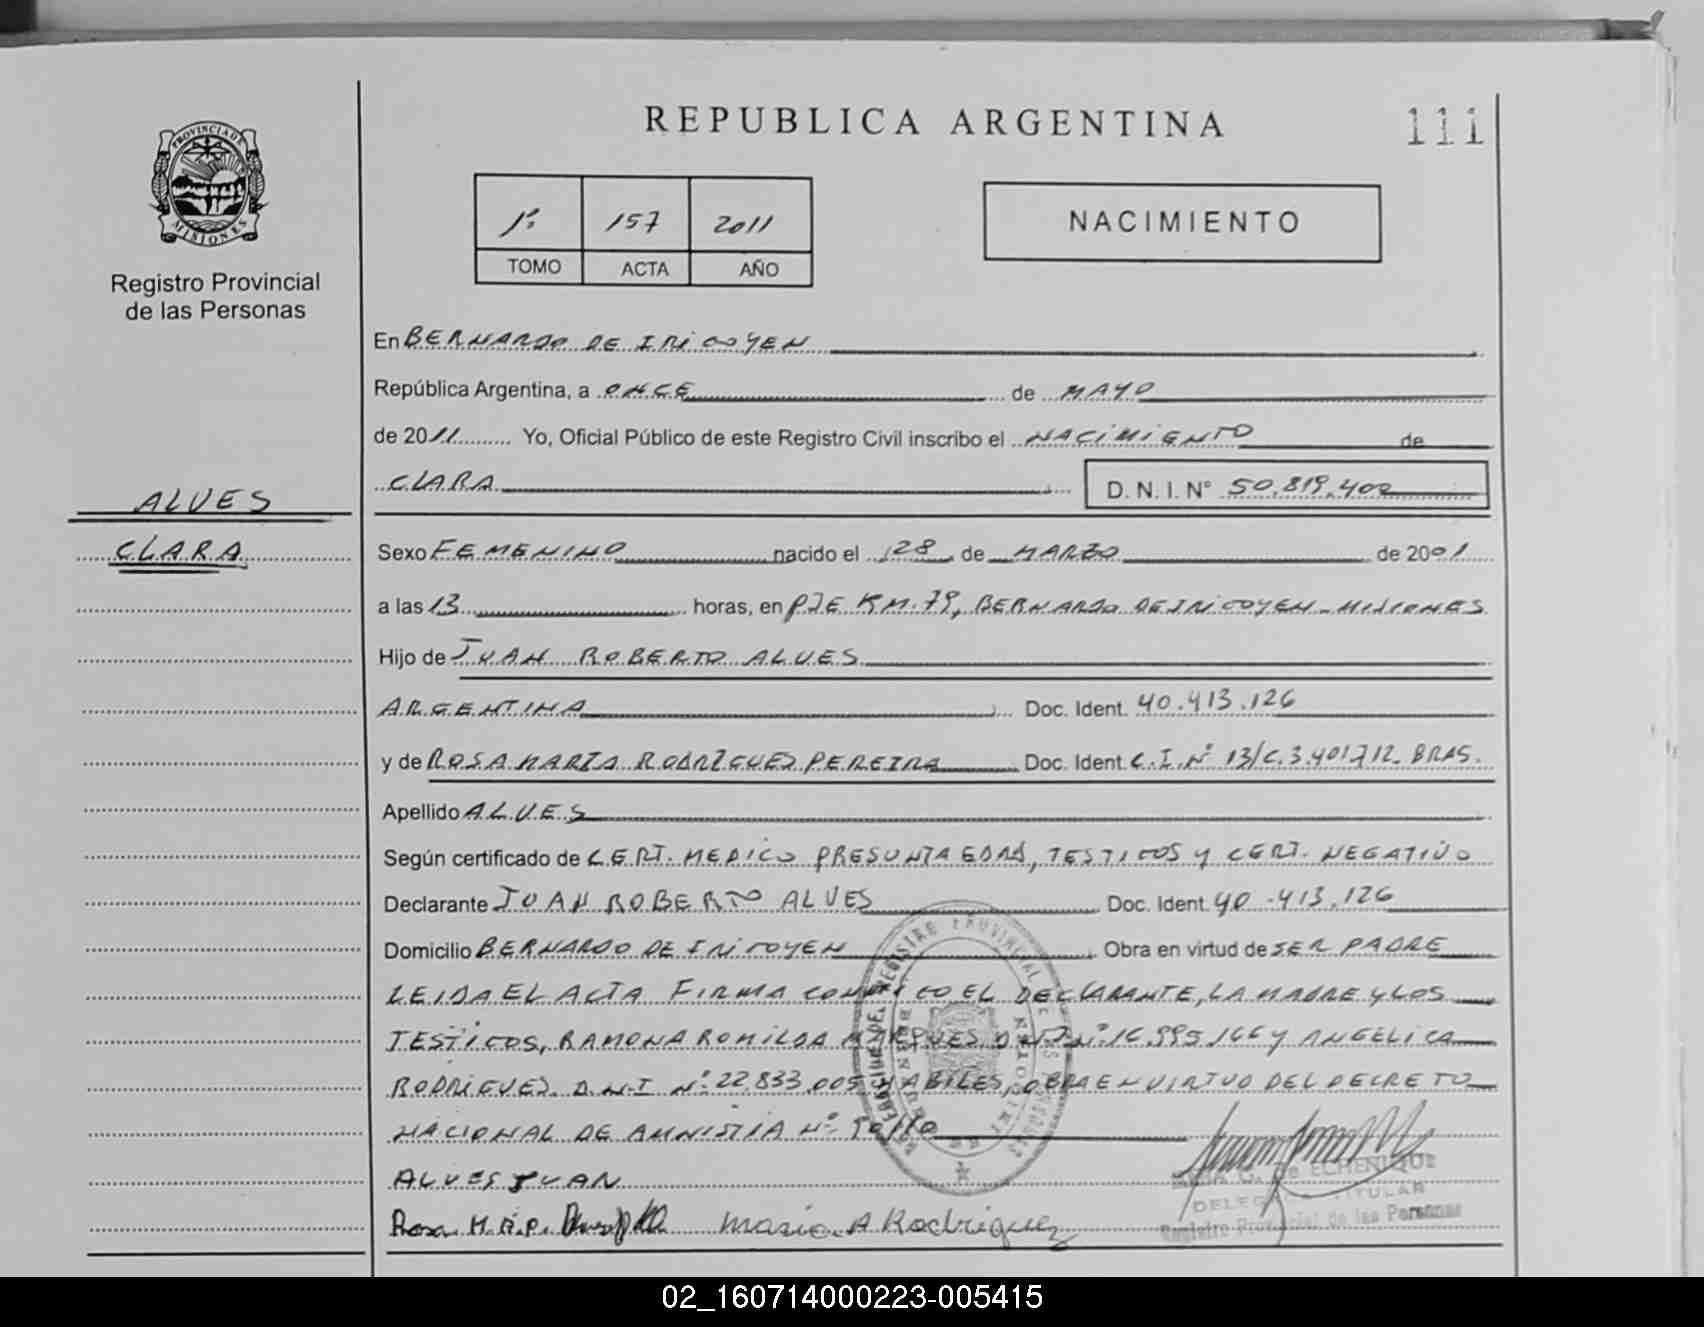 REPUBLICA ARGENTINA
111
PROVINCIA DE
MISIONES
Registro Provincial
de las Personas
1º 157 2011
TOMO ACTA AÑO
NACIMIENTO
En BERNARDO DE IRIGOYEN
República Argentina, a ONCE de MAYO
de 2011 Yo, Oficial Público de este Registro Civil inscribo el NACIMIENTO de
CLARA D. N. I. N° 50.819.400
ALVES
CLARA
Sexo FEMENINO nacido el 28 de MARZO de 2001
a las 13 horas, en PJE KM. 79, BERNARDO DE IRIGOYEN - MISIONES
Hijo de JUAN ROBERTO ALVES
ARGENTINA Doc. Ident. 40.413.126
y de ROSA MARIA RODRIGUES PEREIRA Doc. Ident. C.I. Nº 13/C.3.401.712. BRAS.
Apellido ALVES
Según certificado de CERT. MEDICO PRESUNTA EDAD, TESTIGOS Y CERT. NEGATIVO
Declarante JUAN ROBERTO ALVES Doc. Ident. 40.413.126
Domicilio BERNARDO DE IRIGOYEN Obra en virtud de SER PADRE
LEIDA EL ACTA FIRMA CONMIGO EL DECLARANTE, LA MADRE Y LOS
TESTIGOS, RAMONA ROMILDA D.N.I Nº 16.995.166 Y ANGELICA
RODRIGUES D.N.I Nº 22.833.005 HABILES, OBRA EN VIRTUD DEL DECRETO
NACIONAL DE AMNISTIA Nº 90/10
ALVES JUAN
Rosa M. R. P. Maria A Rodriguez
DE ECHENIQUE
DELEGADA TITULAR
Registro Provincial de las Personas
02_160714000223-005415